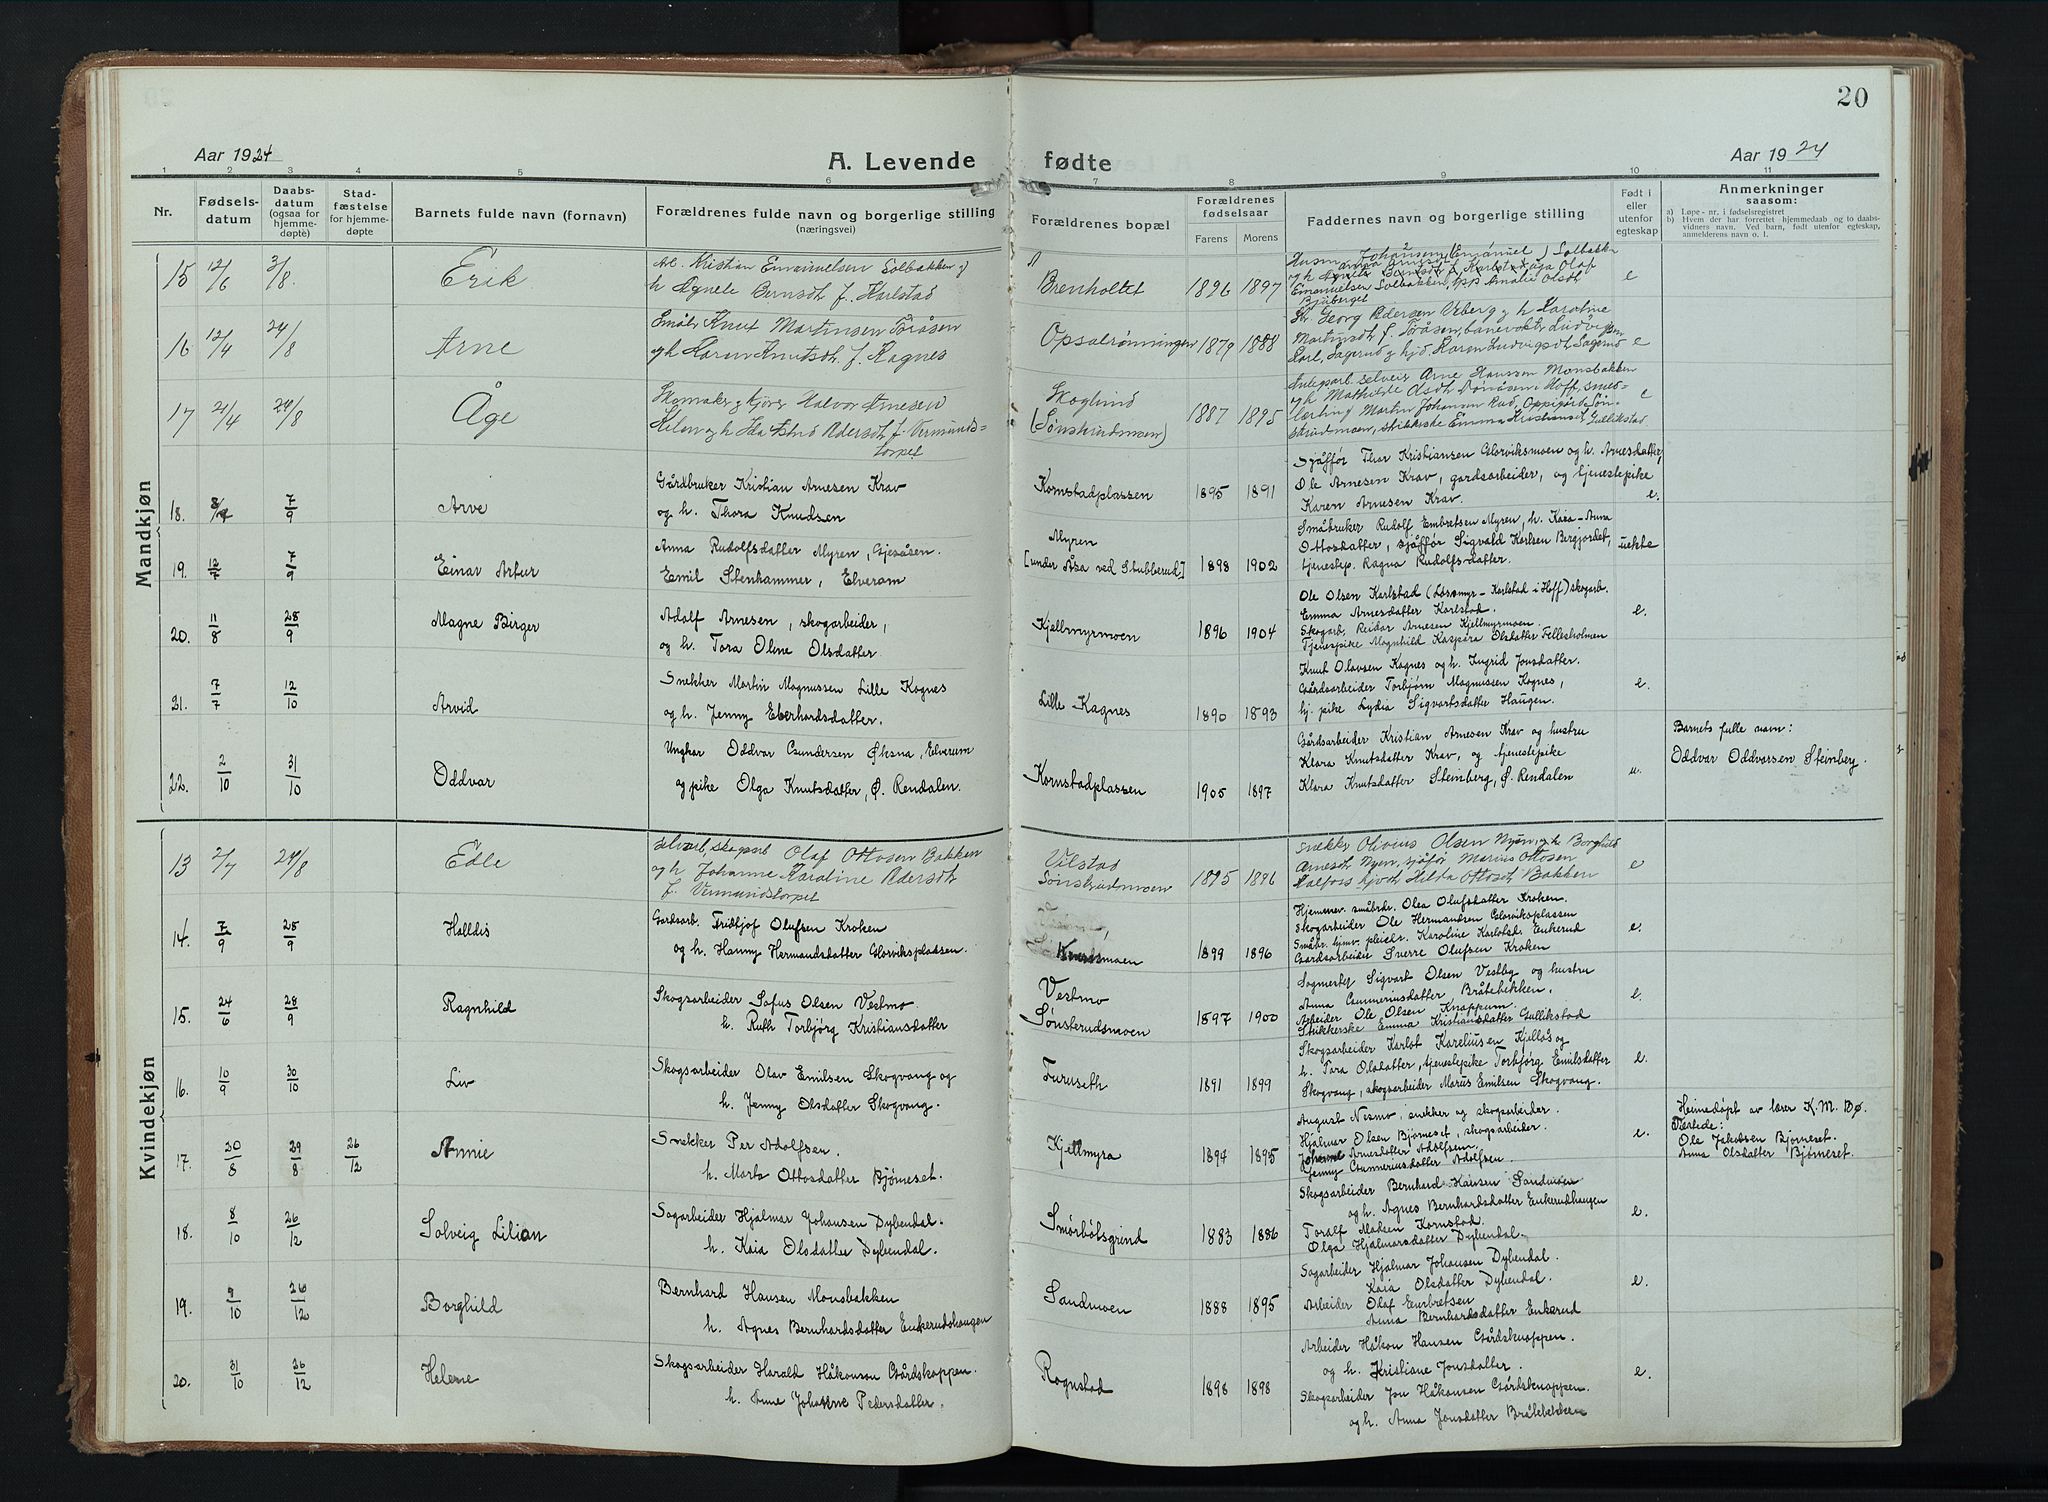 20
Aar 1924
A. Levende fødte
Aar 1924
1 2 3 4 5 6 7 8 9 10 11
Nr.
Fødselsdatum
Daabsdatum (ogsaa for hjemmedøpte)
Stadfæstelse for hjemmedøpte
Barnets fulde navn (fornavn)
Forældrenes fulde navn og borgerlige stilling
(næringsvei)
Forældrenes bopæl
Forældrenes fødselsaar
Farens Morens
Faddernes navn og borgerlige stilling
Født i eller utenfor egteskap
Anmerkninger saasom:
a) Løpe-nr. i fødselsregistret
b) Hvem der har forrettet hjemmedaab og to daabsvidners navn. Ved barn, født utenfor egteskap, anmelderens navn o. l.
Mandkjøn
15 12/6 3/8 Erik
Arb. Kristian Emanuelsen Solbakken og
h Agnete Berntsdt f. Karlstad
Brenholtet 1896 1897
Emanuelsen Solbakken, Amalie Olsdt
Bjuberget
e
16 12/4 24/8 Arne
Småbr Knut Martinsen Toråsen
og h Karen Knutsdt f. Kagnes
Opsalrønningen 1879 1888
Georg Pedersen Veberg og h Karoline
Martinsdt f. Toråsen, banevokter Ludvigsen
Karl, Sagerud og hjd. Karen Ludvigsdt Sagerud
e
17 21/4 24/8 Åge
Skomaker og kjører Halvor Arnesen
Kilen og h Ida Pedersdt f. Vermunds-
torpet
Skoglund
(Sønskrudmoen) 1887 1895
Anleparb. selveier Arne Hanssen Monsbakken
og h Mathilde Olsdt Hoff, smed-
lærling Martin Johansen Rud, Oppigård Søn-
strudmoen, strikkerske Emma Kristiansdt Gullikstad
e
18. 7/9 Arve
Gårdbruker Kristian Arnesen Krav
og h. Thora Knudsen
Kornstadplassen 1895 1891
Sjåffør Thor Kristiansen Glorviksmoen og h. Arnesdatter
Ole Arnesen Krav, gardsarbeider, og tjenestepike
Karen Arnesen Krav.
e.
19. 12/7 7/9 Einar Artur
Anna Rudolfsdatter Myren, Gjesåsen.
Emil Stenhammer, Elverum
Myren
[under Åsa ved Stubberud] 1898 1902
Småbruker Rudolf Embretsen Myren, h. Kaia-Anna
Ottosdatter, sjåffør Sigvald Karlsen Bergjordet,
tjenestep. Ragna Rudolfsdatter.
uekte
20. 11/8 28/9 Magne Birger
Adolf Arnesen, skogarbeider,
og h. Tora Oline Olsdatter
Kjellmyrmoen 1896 1904
Ole Olsen Karlstad (Løsmyr-Karlstad i Hoff) skogarb.
Emma Arnesdatter Karlstad.
Skogarb. Reidar Arnesen Kjellmyrmoen.
Tjenespike Magnhild Kaspara Olsdatter Fellesholmen
e.
21. 7/7 12/10 Arvid
Snekker Martin Magnussen Lille Kagnes
og h. Jenny Eberhardsdatter.
Lille Kagnes 1890 1893
Knut Olavsen Kagnes og h. Ingrid Jonsdatter.
Gårdsarbeider Torbjørn Magnussen Kagnes,
tj. pike Lydia Sigvartsdatter Haugen.
e.
22. 2/10 31/10 Oddvar
Ungkar Oddvar Gundersen Øksna, Elverum
og pike Olga Knutsdatter, Ø. Rendalen.
Kornstadplassen 1905 1897
Gårdsarbeider Kristian Arnesen Krav og hustru
Klara Knutsdatter Krav, og tjenestepike
Klara Knutsdatter Steinberg, Ø. Rendalen
u.
Barnets fulle navn:
Oddvar Oddvarsen Steinberg.
Kvindekjøn
13 2/7 24/8 Edle
selveier, skogarb Olaf Ottosen Bakken
og h Johanne Karoline Pedersdt
f. Vermundstorpet
Vilstad
Sønskrudmoen 1895 1896
snekker Olivius Olsen Nyen, og h Borghild
Arnesdt Nyen, sjåfør Marius Ottosen
Kalfoss hjvdt Hilda Ottosdt Bakken
e
14. 7/9 28/9 Halldis
Gardsarb. Fridtjof Olufsen Kroken
og h. Hanny Hermandsdatter Glorviksplassen.
Kverismoen 1899 1896
Hjemmev. småbrdr. Olea Olufsdatter Kroken.
Skogarbeider Ole Hermandsen Glorviksplassen
Småbr. hjmv. pleiedt. Karoline Karlstad, Enkerud
Gårdsarbeider Sverre Olufsen Kroken
e.
15. 24/6 28/9 Ragnhild
Skogsarbeider Sofus Olsen Vestmo
h. Ruth Torbjørg Kristiansdatter
Vestmo
Sønsterudsmoen 1897 1900
Sagmester Sigvart Olsen Vestby og hustru
Anna Gunneriusdatter Bråtebekken.
Arbeider Ole Olsen Knappum.
Strikkerske Emma Kristiansdatter Gullikstad
e.
16. 10/9 30/10 Liv
Skogsarbeider Olav Emilsen Skogvang og
h. Jenny Olsdatter Skogvang.
Furuseth 1891 1899
Skogsarbeider Karlot Kareliusen Kjellås og
h. Tora Olsdatter, tjenestepike Torbjørg Emilsdatter
Skogvang, skogarbeider Marus Emilsen Skogvang.
e.
17. 20/8 29/8 26/12 Annie
Snekker Per Adolfsen.
h. Marta Ottosdatter Bjørneset.
Kjellmyra 1894 1895
August Nismo, snekker og skogsarbeider.
Hjalmar Olsen Bjørneset, skogsarbeider.
Johanne Arnesdatter Adolfsen.
Jenny Gunneriusdatter Adolfsen.
e.
Heimedøpt av lærer K. M. Bø.
Tilstede:
Ole Jakobsen Bjørneset.
Anna Olsdatter Bjørneset.
18. 8/10 26/12 Solveig Lilian
Sagarbeider Hjalmar Johansen Dybendal.
h. Kaia Olsdatter Dybendal.
Smørhólsgrind 1883 1886
Skogsarbeider Bernhard Hansen Sandmoen
og h. Agnes Bernhardsdatter Enkerudhaugen
Toralf Madsen Kornstad.
Olga Hjalmarsdatter Dybendal.
e.
19. 9/10 26/12 Borghild
Bernhard Hansen Monsbakken
h. Agnes Bernhardsdatter Enkerudshaugen
Sandmoen 1888 1895
Sagarbeider Hjalmar Johansen Dybendal.
Kaia Olsdatter Dybendal.
Arbeider Olaf Embretsen
Anna Bernhardsdatter Enkerud
e.
20. 31/10 26/12 Helene
Skogsarbeider Harald Håkonson Gårdsknappen.
h. Anne Johanne Pedersdatter.
Rognstad 1898 1898
Arbeider Håkon Hansen Gårdsknappen.
og h. Kristiane Jonsdatter.
Skogsarbeider Jon Håkonsen Gårdsknappen.
og h. Anna Jonsdatter Bråtebekken
e.